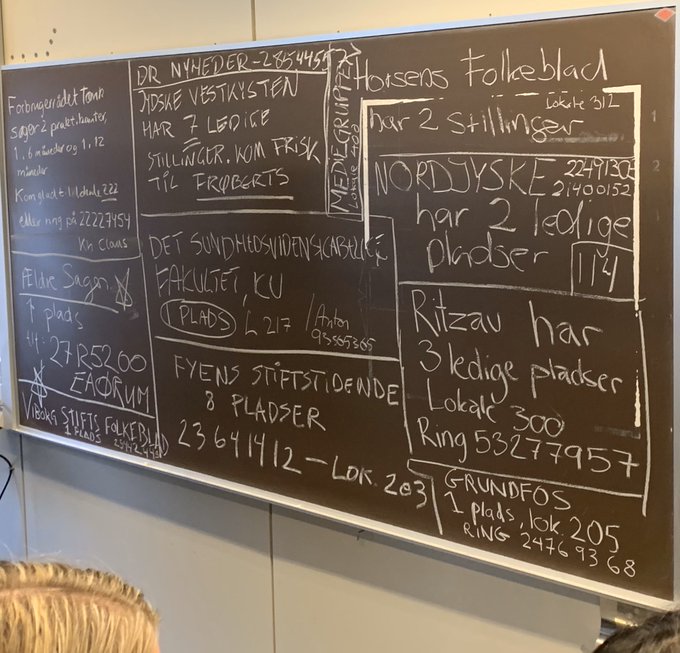 Forbrugerrådet Tænk
søger 2 praktikanter,
1. 6 måneder og 1. 12
måneder
Kom glad til lokale 222
eller ring på 22227454
Kh Claus
Ældre Sagen
1 plads
27 R5200
VIBORG STIFTS FOLKEBLAD
1 PLADS
DR NYHEDER - 2854455
JYDSKE VESTKYSTEN
HAR 7 LEDIGE
STILLINGER. KOM FRISK
TIL FRØBERTS
DET SUNDHEDSVIDENSKABELIGE
FAKULTET, KU
1 PLADS
L 217
/ Anton
93565365
FYENS STIFTSTIDENDE
8 PLADSER
23641412 - LOK. 203
MEDIEGRUPPEN
Lokale
Horsens Folkeblad
Lokale 312
har 2 stillinger
NORDJYSKE
22491305
21400152
har 2 ledige
pladser
114
Ritzau har
3 ledige pladser
Lokale 300
Ring 53277957
GRUNDFOS
1 plads, lok. 205
RING 24769368